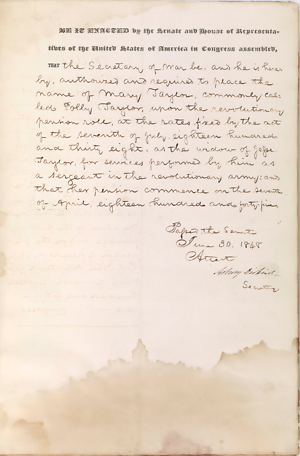 BE IT ENACTED by the Senate and House of Representa-
tives of the United States of America in Congress assembled,
THAT the Secretary of War be, and he is here
by, authorized and required to place the
name of Mary Taylor, commonly cal-
led Polly Taylor, upon the revolutionary
pension roll, at the rates fixed by the act
of the seventh of July, eighteen hundred
and thirty eight, as the widow of
Taylor, for services performed by him as
a sergeant in the revolutionary army: and
that her pension commence on the
of April, eighteen hundred and forty-five
Passed the Senate
June 30, 1848
Attest
Asbury Dickins
Secretary